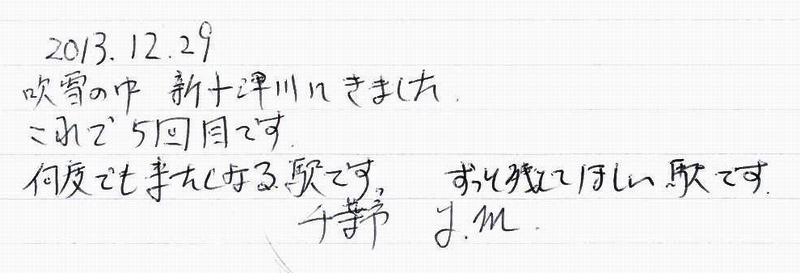 2013.12.29
吹雪の中 新十津川にきました.
これで5回目です.
何度でも来たくなる駅です。 ずっと残してほしい駅です.
千葉市 Y.M.